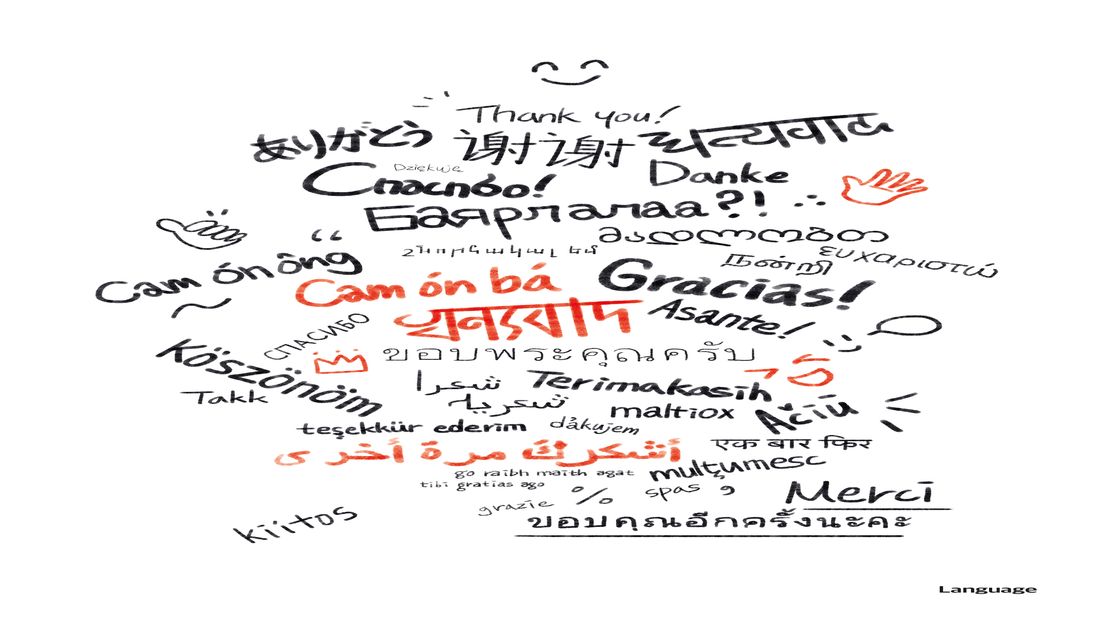 Thank you!
ありがとう 谢谢 धन्यवाद
Dziękuję
Спасибо! Danke
Баярлалаа?!
მადლობთ
Cảm ơn ông շնորհակալ եմ நன்றி ευχαριστώ
Cảm ơn bá Gracias!
ধন্যবাদ Asante!
СПАСИБО
ขอบพระคุณครับ
Köszönöm
شكرا Terimakasih
Takk شكريه maltiox Ačiū
teşekkür ederim ďakujem
أشكرك مرة أخرى एक बार फिर
go raibh maith agat mulțumesc
tibi gratias ago
grazie spas Merci
kiitos ขอบคุณอีกครั้งนะคะ
Language